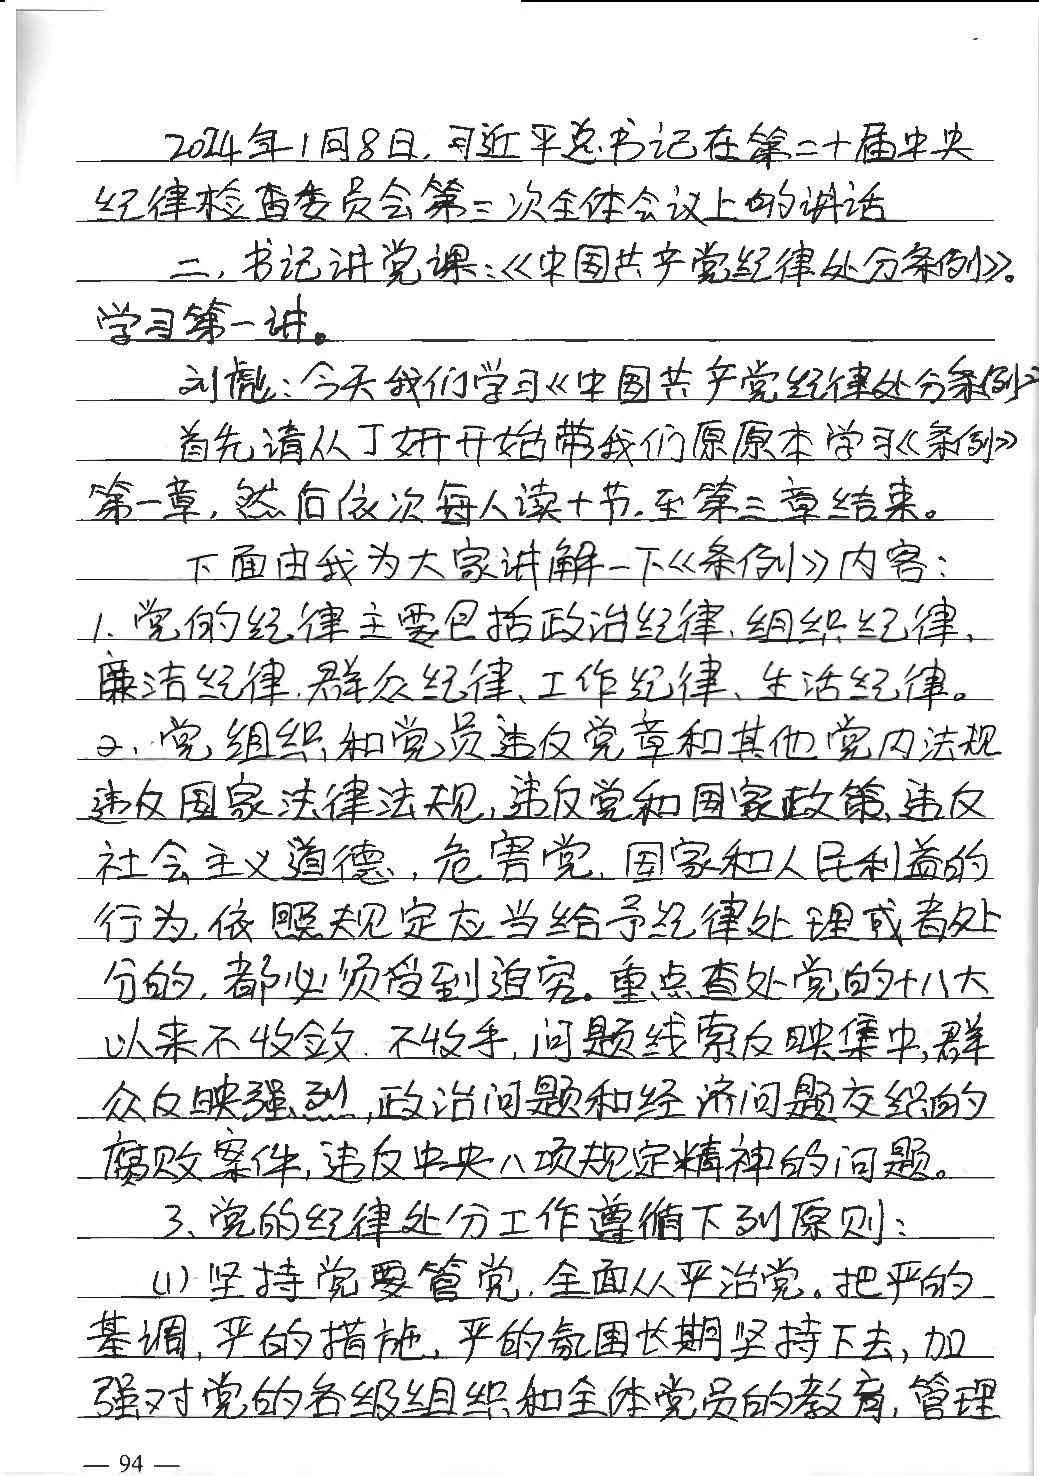 2024年1月8日，习近平总书记在第二十届中央
纪律检查委员会第三次全体会议上的讲话
二，书记讲党课：《中国共产党纪律处分条例》。
学习第一讲。
刘彪：今天我们学习《中国共产党纪律处分条例》
首先请从丁妍开始带我们原原本学习《条例》
第一章，然后依次每人读十节，至第三章结束。
下面由我为大家讲解一下《条例》内容：
1、党的纪律主要包括政治纪律、组织纪律、
廉洁纪律、群众纪律、工作纪律、生活纪律。
2、党组织和党员违反党章和其他党内法规
违反国家法律法规，违反党和国家政策，违反
社会主义道德，危害党、国家和人民利益的
行为，依照规定应当给予纪律处理或者处
分的，都必须受到追究。重点查处党的十八大
以来不收敛、不收手，问题线索反映集中，群
众反映强烈，政治问题和经济问题交织的
腐败案件，违反中央八项规定精神的问题。
3、党的纪律处分工作遵循下列原则：
(1)坚持党要管党，全面从严治党。把严的
基调，严的措施，严的氛围长期坚持下去，加
强对党的各级组织和全体党员的教育，管理
— 94 —